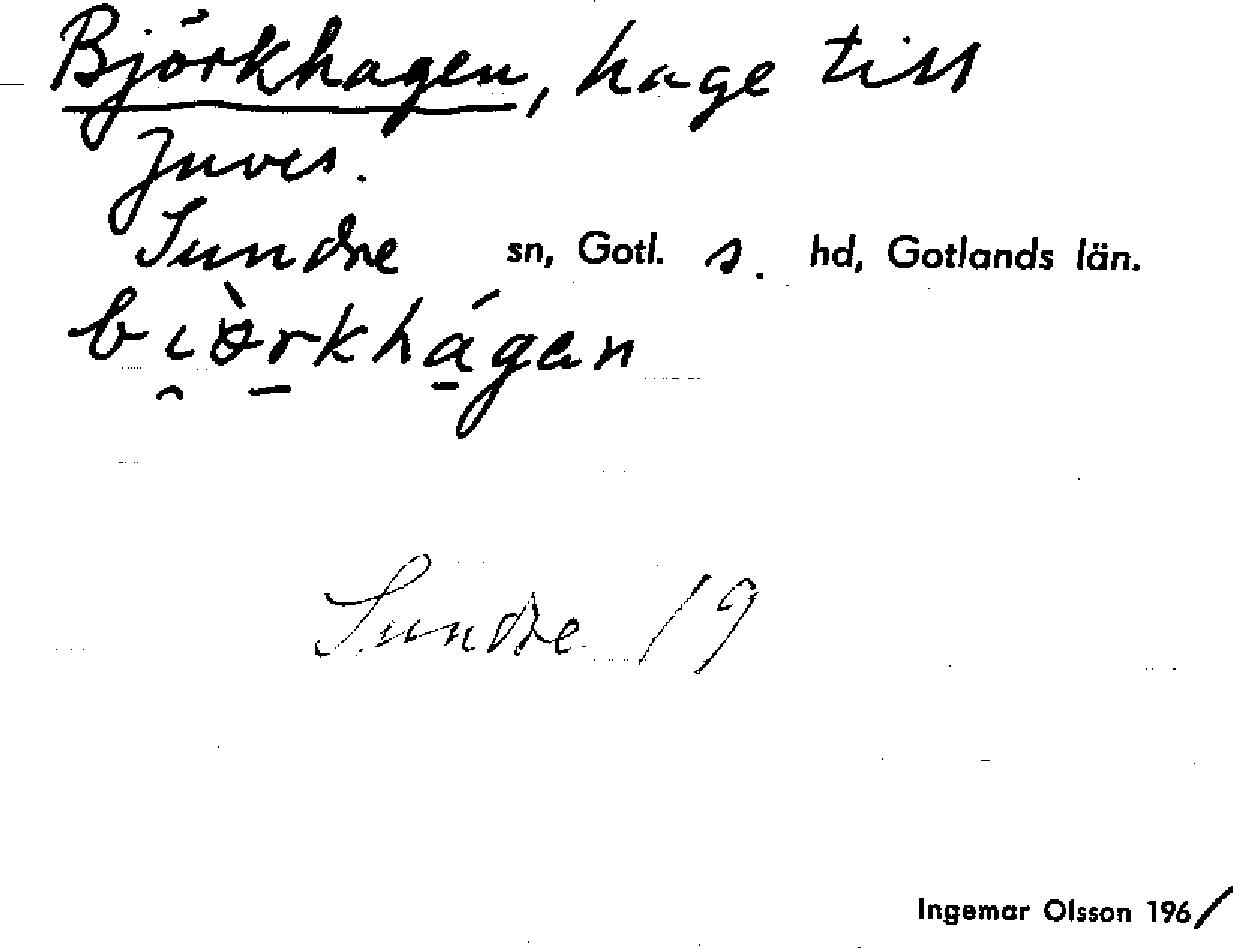 Björkhagen, hage till
Juves.
Sundre sn, Gotl. s. hd, Gotlands län.
bi̯ö̀r̠khá̠gan
Sundre 19
Ingemar Olsson 196/